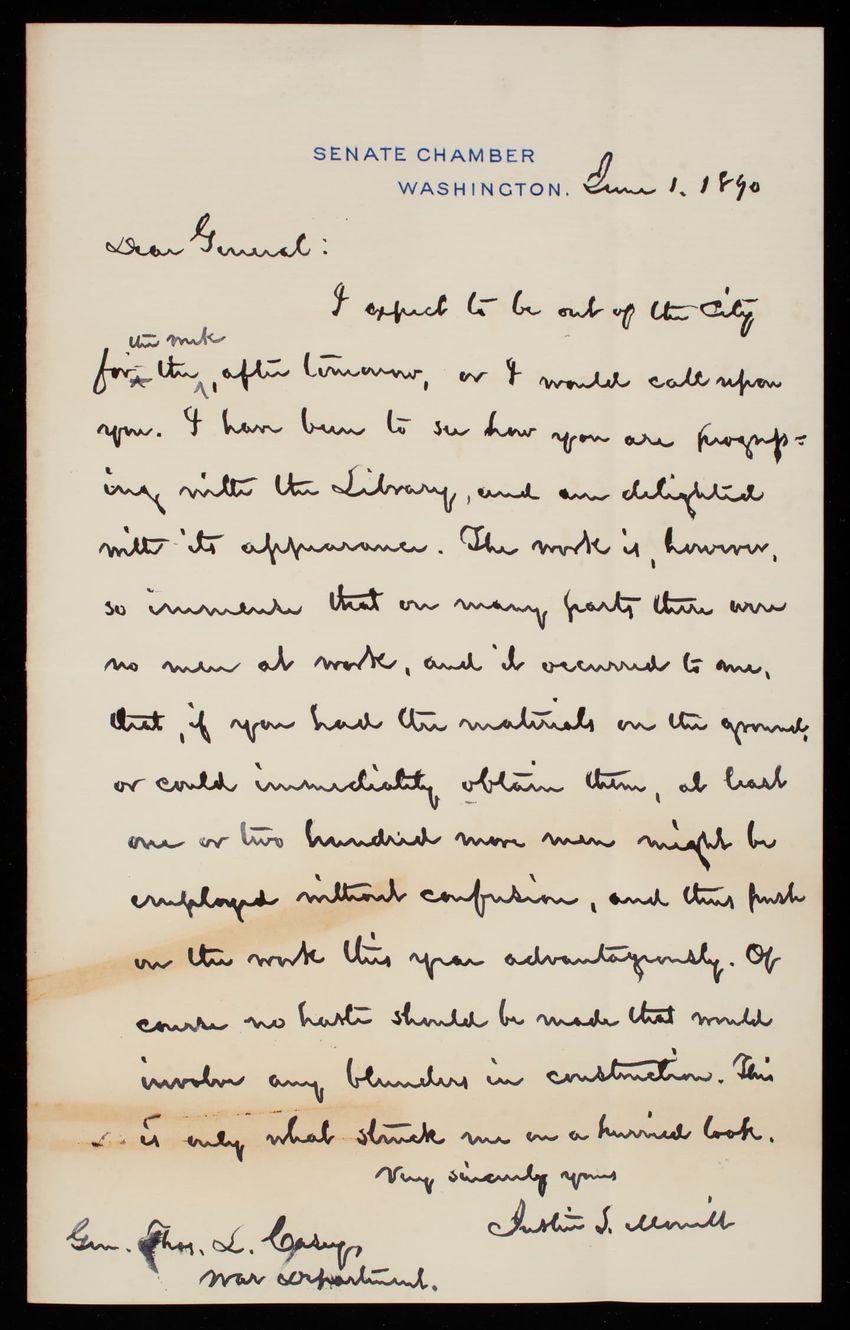 SENATE CHAMBER
WASHINGTON. June 1. 1890
Dear General:
I expect to be out of the City
the week
for the, after tomorrow, or I would call upon
you. I have been to see how you are progress=
ing with the Library, and am delighted
with its appearance. The work is, however,
so immense that on many parts there were
no men at work, and it occurred to me,
that, if you had the materials on the ground,
or could immediately obtain them, at least
one or two hundred more men might be
employed without confusion, and thus push
on the work this year advantageously. Of
course no haste should be made that would
involve any blunders in construction. This
is only what struck me on a hurried look.
Very sincerely yours
Justin S. Morrill
Gen. Thos. L. Casey,
War Department.